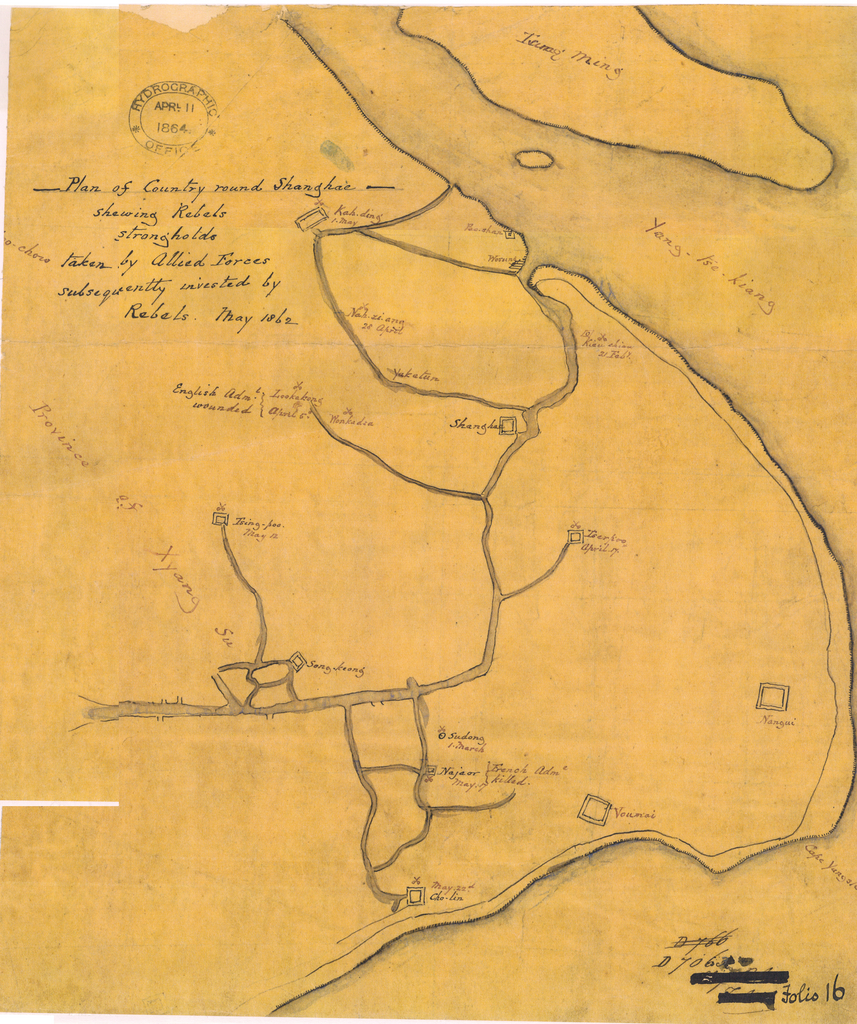 HYDROGRAPHIC
APRL 11
1864
OFFICE
Plan of Country round Shanghae
shewing Rebels
strongholds
taken by Allied Forces
subsequently invested by
Rebels. May 1862
Tsung Ming
Yang-tse-kiang
Kah-ding
1. May
Woosung
Nah-ziang
28 April
Kiau shiau
21 Feb.
Yaketun
English Adm.l
wounded
April 5th
Wonkadza
Shanghae
Tsing-poo.
May 12
April 17.
Province
of
Kyang
Su
Song keong
Sudong
1. March
Najaor
May. 17
French Adm.l
killed.
Nangui
Younai
May. 20th
Cho-lin
Cape Yang
D 766
D 706
Folio 16